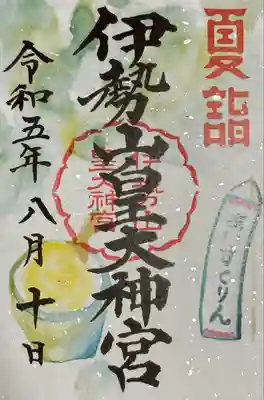 夏詣
伊勢山皇大神宮
伊勢山
皇大神宮
令和五年八月十日